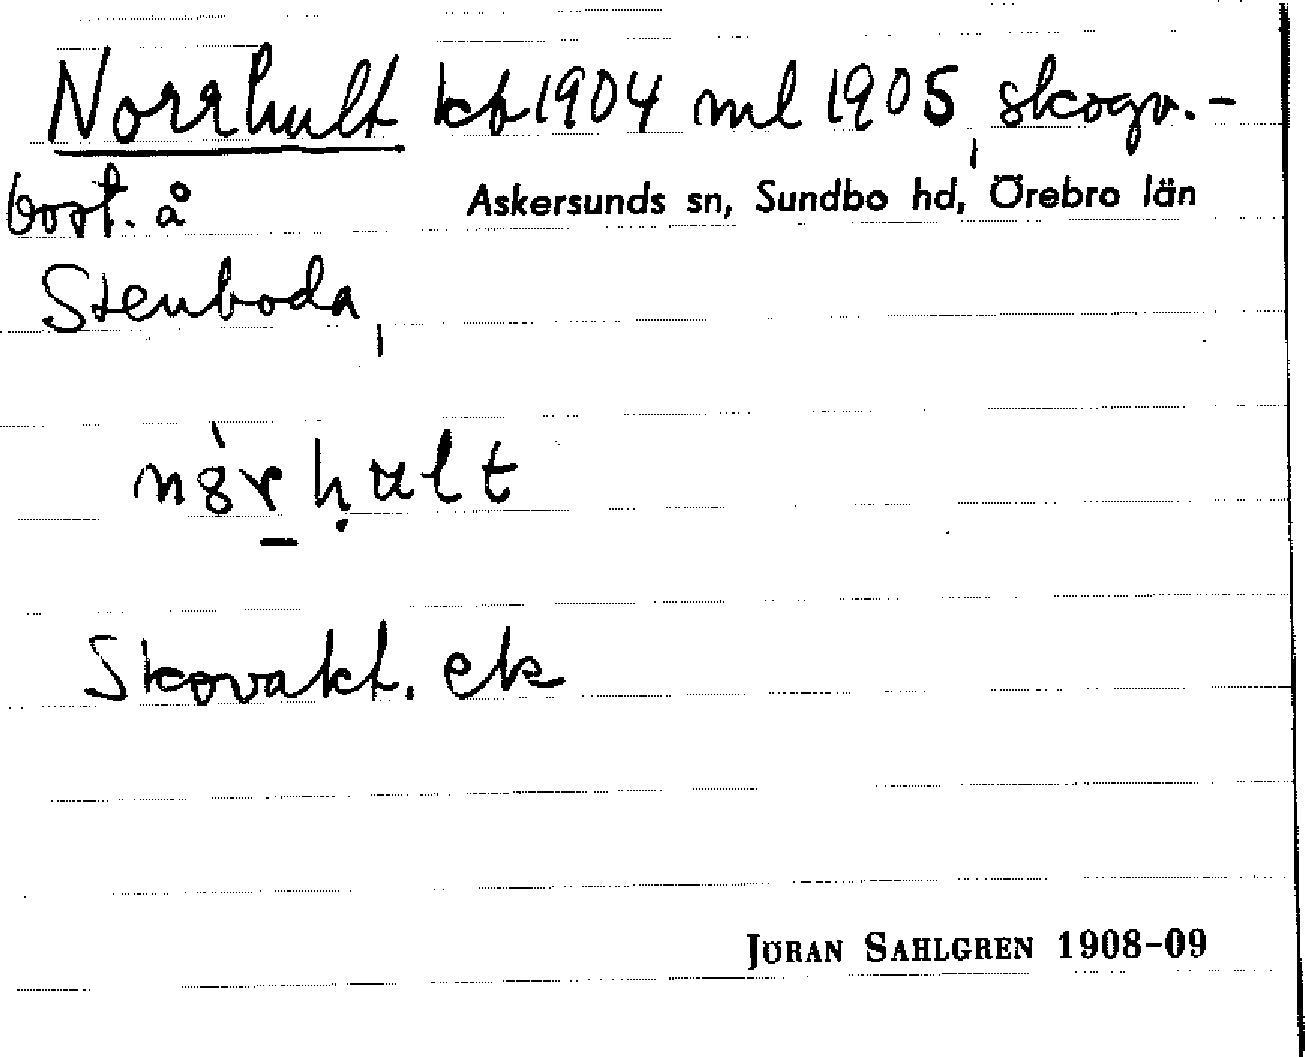 Norrhult kb 1904 ml 1905, skogv.-
bost. å
Askersunds sn, Sundbo hd, Örebro län
Stenboda,
Skovakt. ek
JÖRAN SAHLGREN 1908–09